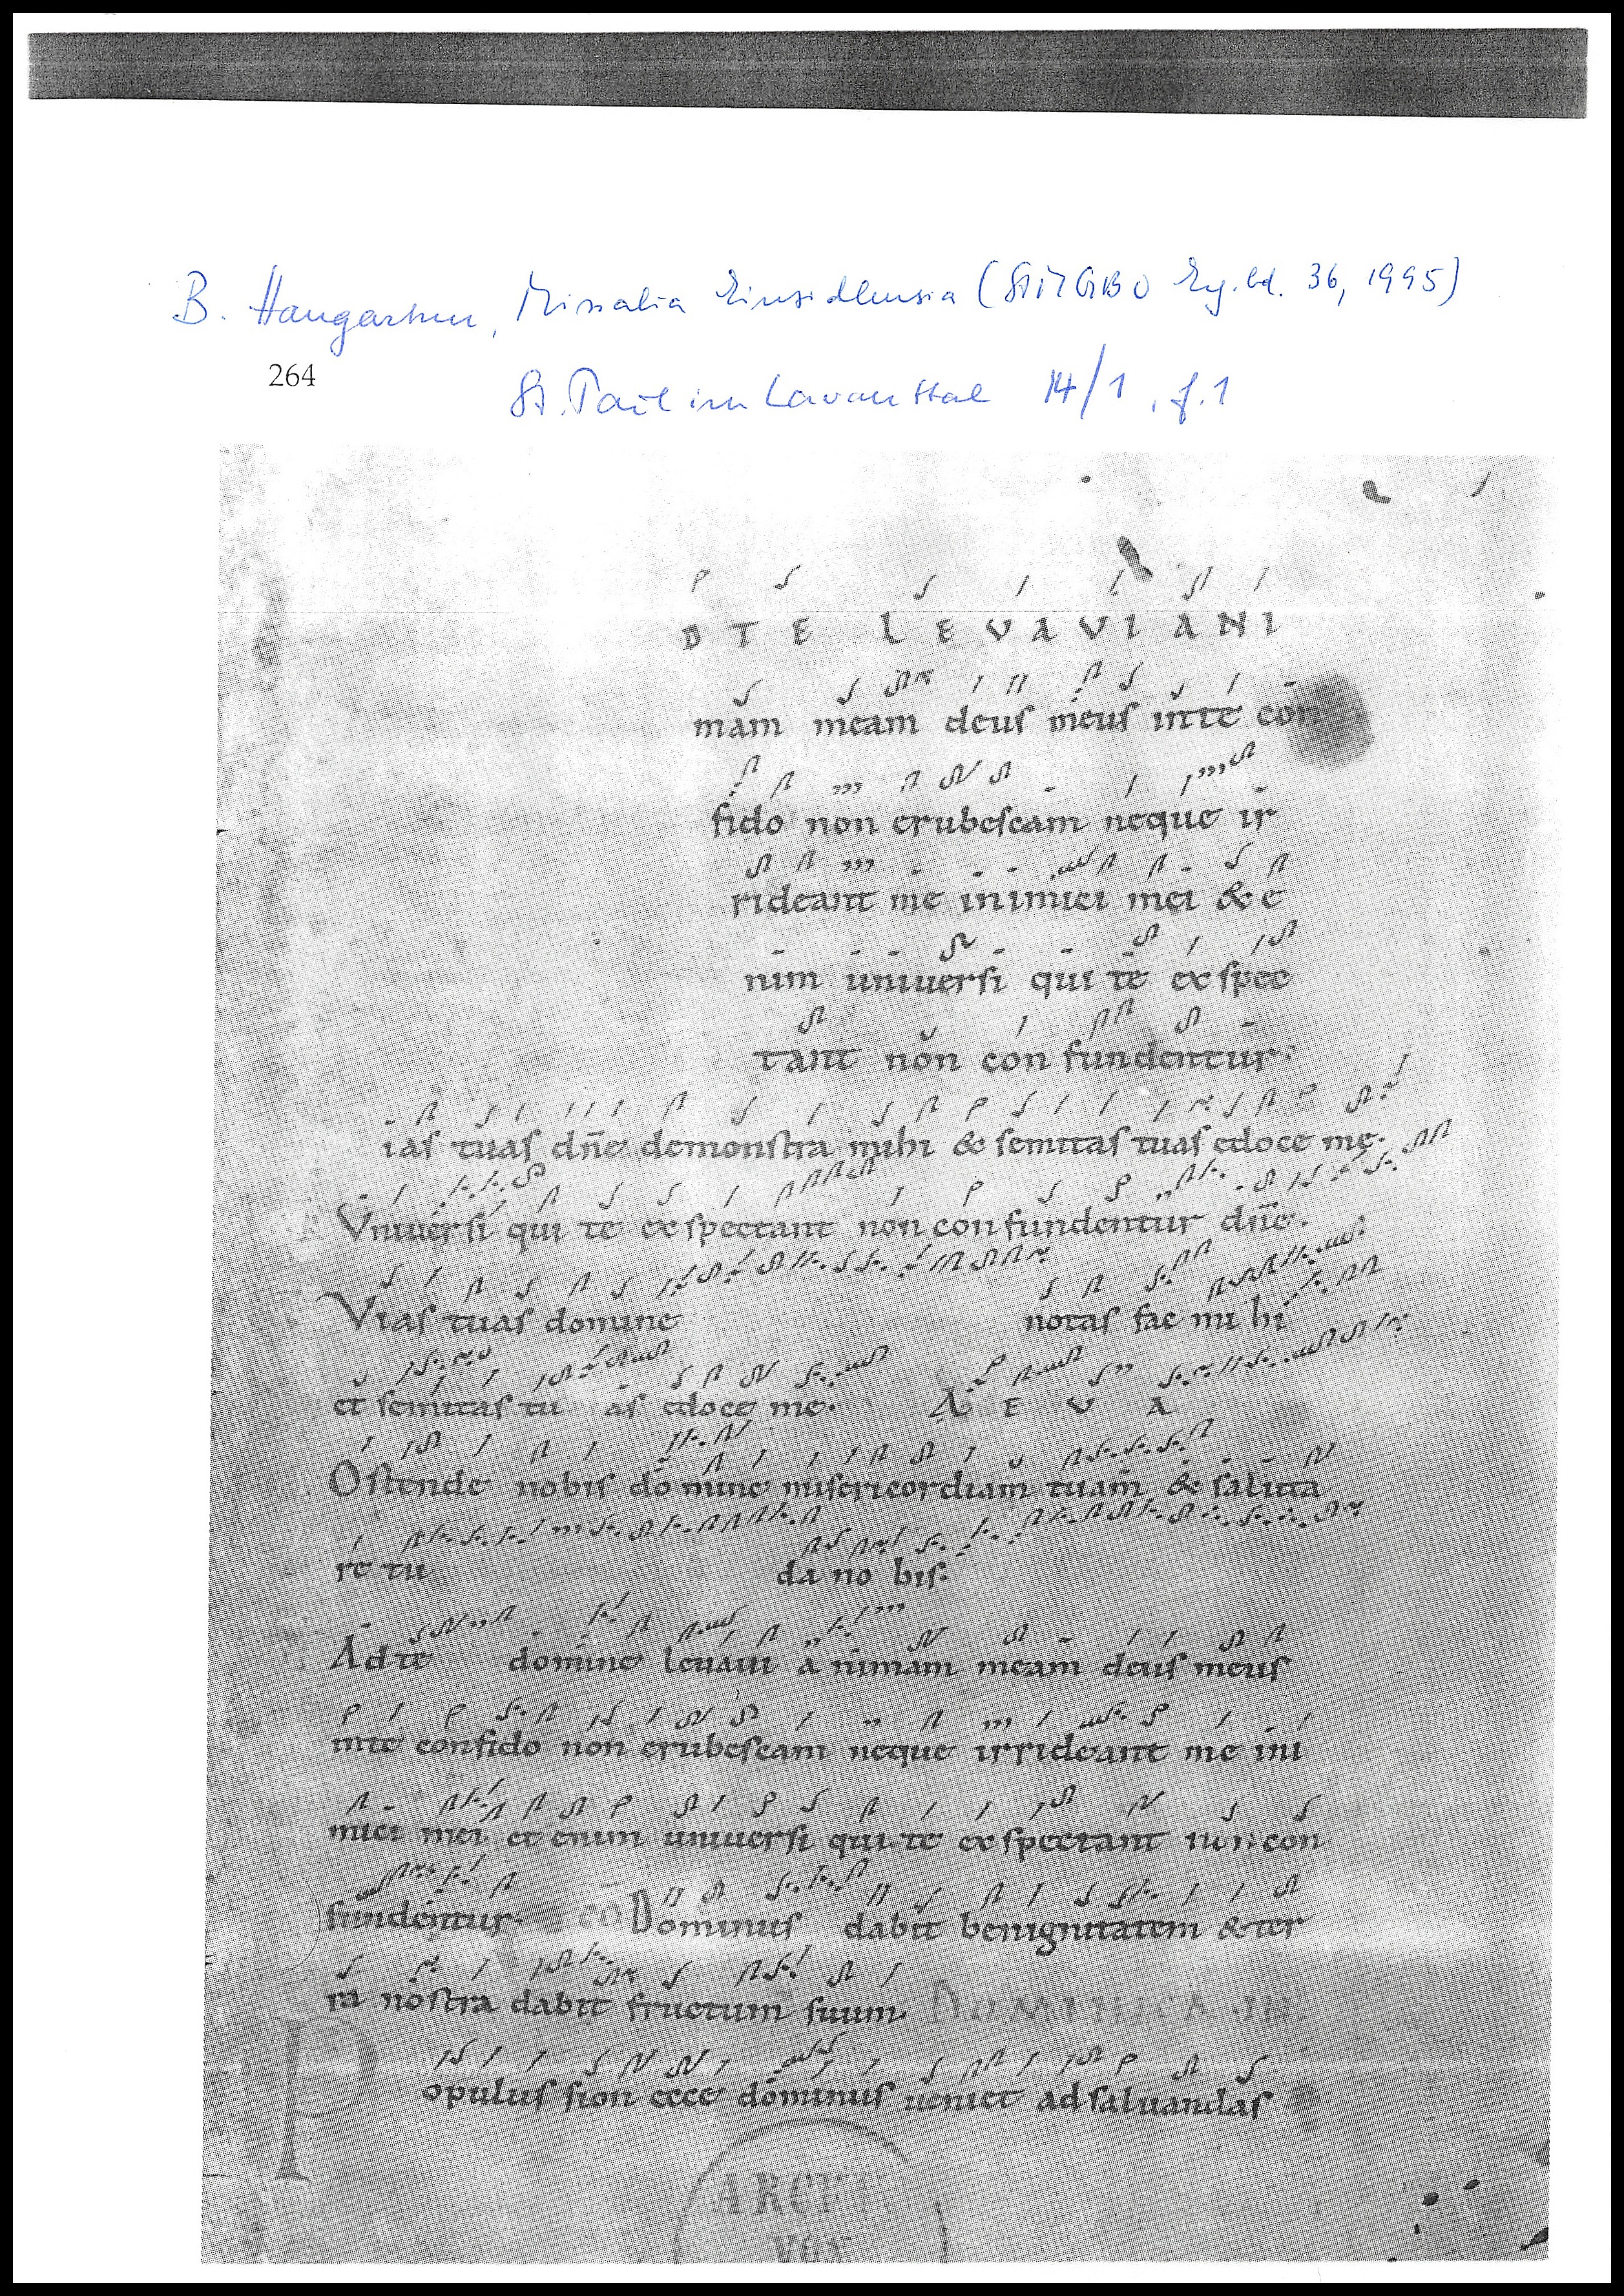 B. Hangartner, Missalia Einsidlensia (StMGBO Erg.bd. 36, 1995)
264
St. Paul im Lavanttal 14/1, f. 1
D TE LEVAVI ANI
mam meam deus meus inte con
fido non erubescam neque ir
rideant me inimici mei & e
nim uniuersi qui te exspec
tant non confundentur.
ias tuas dñe demonstra mihi & semitas tuas edoce me.
Vniuersi qui te exspectant non confundentur dñe.
Vias tuas domine notas fac mihi
et semitas tu as edoce me. AEVA
Ostende nobis domine misericordiam tuam & saluta
re tu da nobis.
Ad te domine leuaui animam meam deus meus
inte confido non erubescam neque irrideant me ini
mici mei et enim uniuersi qui te exspectant non con
fundentur. cō Dominus dabit benignitatem & ter
ra nostra dabit fructum suum. DOMINICA III
P opulus sion ecce dominus ueniet ad saluandas
ARCHI
VON